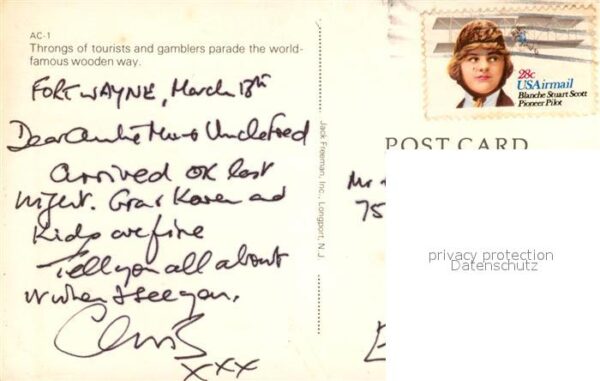 AC-1
Throngs of tourists and gamblers parade the world-
famous wooden way.
FORT WAYNE, March 13th
Dear Auntie & Uncle Fred
Arrived OK last
night. Karen and
Kids are fine
Tell you all about
it when I see you.
Chris
xxx
Jack Freeman, Inc., Longport, N. J.
28c
USAirmail
Blanche Stuart Scott
Pioneer Pilot
POST CARD
Mr
75
privacy protection
Datenschutz